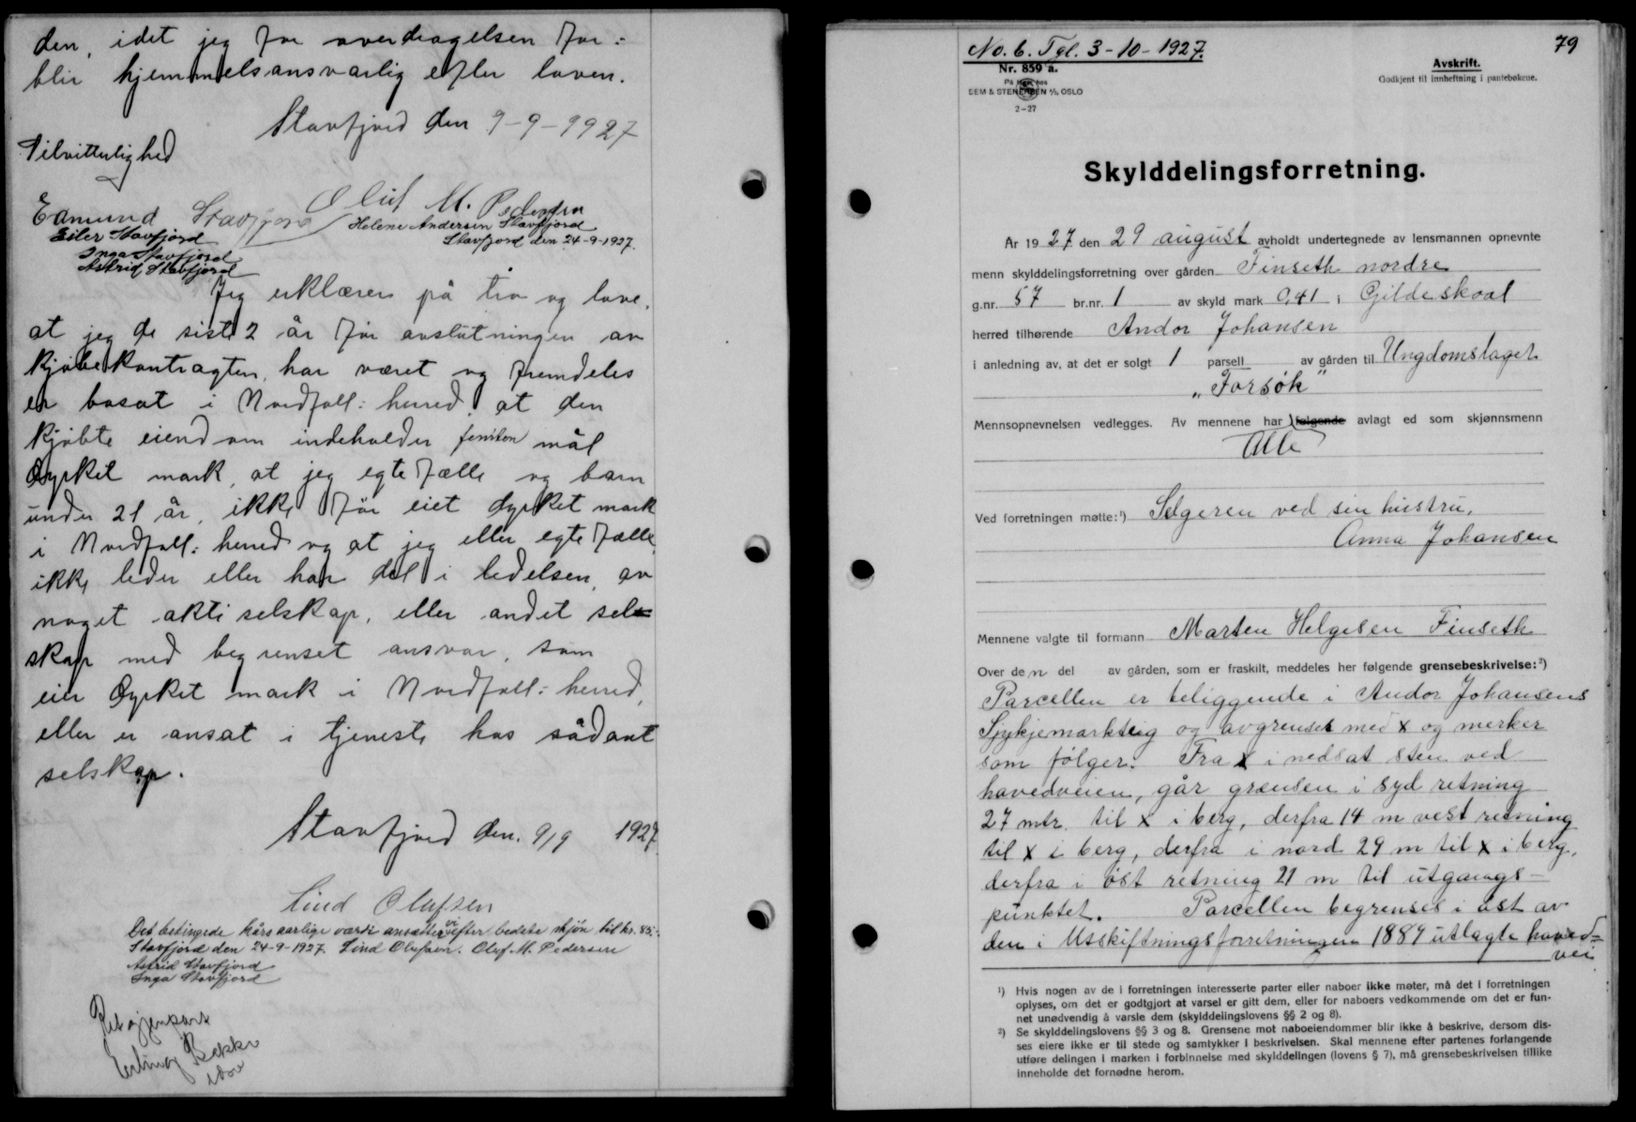 den, idet jeg for overdragelsen for=
blir hjemmelsansvarlig efter loven.
Stavfjord den 9-9-1927
Tilvitterlighed
Oluf M. Pedersen
Edmund Stavfjord
Helene Andersen Stavfjord
Eiler Stavfjord
Stavfjord den 24-9-1927.
Inga Stavfjord
Astrid Stavfjord
Jeg erklærer på tro og love,
at jeg de siste 2 år før avslutningen av
kjøbekontragten, har været og fremdeles
er bosat i Nordfoll: herred, at den
kjøbte eiendom indeholder femten mål
dyrket mark, at jeg egtefælle og barn
under 21 år, ikke før eiet dyrket mark
i Nordfoll: herred og at jeg eller egtefælle
ikke leder eller har del i ledelsen, av
noget aktiselskap, eller andet sel=
skap med begrenset ansvar, som
eier dyrket mark i Nordfoll: herred,
eller er ansat i tjeneste hos sådant
selskap.
Stavfjord den. 9/9 1927
Lind Olufsen
Det betingede kårs aarlige værdi ansætter vi efter bedste skjøn til kr. 85,-
Stavfjord den 24-9-1927. Lind Olufsen. Oluf M. Pedersen
Astrid Stavfjord
Inga Stavfjord
Erling Bakke
No. 6. Tgl. 3-10-1927.
79
Nr. 859 a.
Avskrift.
Godkjent til innheftning i pantebøkene.
SEM & STENERSEN A/S, OSLO
2-27
Skylddelingsforretning.
År 1927 den 29 august avholdt undertegnede av lensmannen opnevnte
menn skylddelingsforretning over gården Finseth nordre
g.nr. 57 br.nr. 1 av skyld mark 0,41 i Gildeskaal
herred tilhørende Andor Johansen
i anledning av, at det er solgt 1 parsell av gården til Ungdomslaget
„Forsøk"
Mennsopnevnelsen vedlegges. Av mennene har følgende avlagt ed som skjønnsmenn
Alle
Ved forretningen møtte:¹) Selgeren ved sin hustru,
Anna Johansen
Mennene valgte til formann Morten Helgesen Finseth
Over den del av gården, som er fraskilt, meddeles her følgende grensebeskrivelse:²)
Parcellen er beliggende i Andor Johansens
og avgrenset med x og merker
som følger: Fra x i nedsat sten ved
hovedveien, går grænsen i syd retning
27 mtr. til x i berg, derfra 14 m vest retning
til x i berg, derfra i nord 29 m til x i berg,
derfra i øst retning 21 m til utgangs-
punktet. Parcellen begrenses i øst av
den i Utskiftningsforretningen 1889 utlagte hoved=
vei
¹) Hvis nogen av de i forretningen interesserte parter eller naboer ikke møter, må det i forretningen
oplyses, om det er godtgjort at varsel er gitt dem, eller for naboers vedkommende om det er fun-
net unødvendig å varsle dem (skylddelingslovens §§ 2 og 8).
²) Se skylddelingslovens §§ 3 og 8. Grensene mot naboeiendommer blir ikke å beskrive, dersom dis-
ses eiere ikke er til stede og samtykker i beskrivelsen. Skal mennene efter partenes forlangende
utføre delingen i marken i forbinnelse med skylddelingen (lovens § 7), må grensebeskrivelsen tillike
inneholde det fornødne herom.